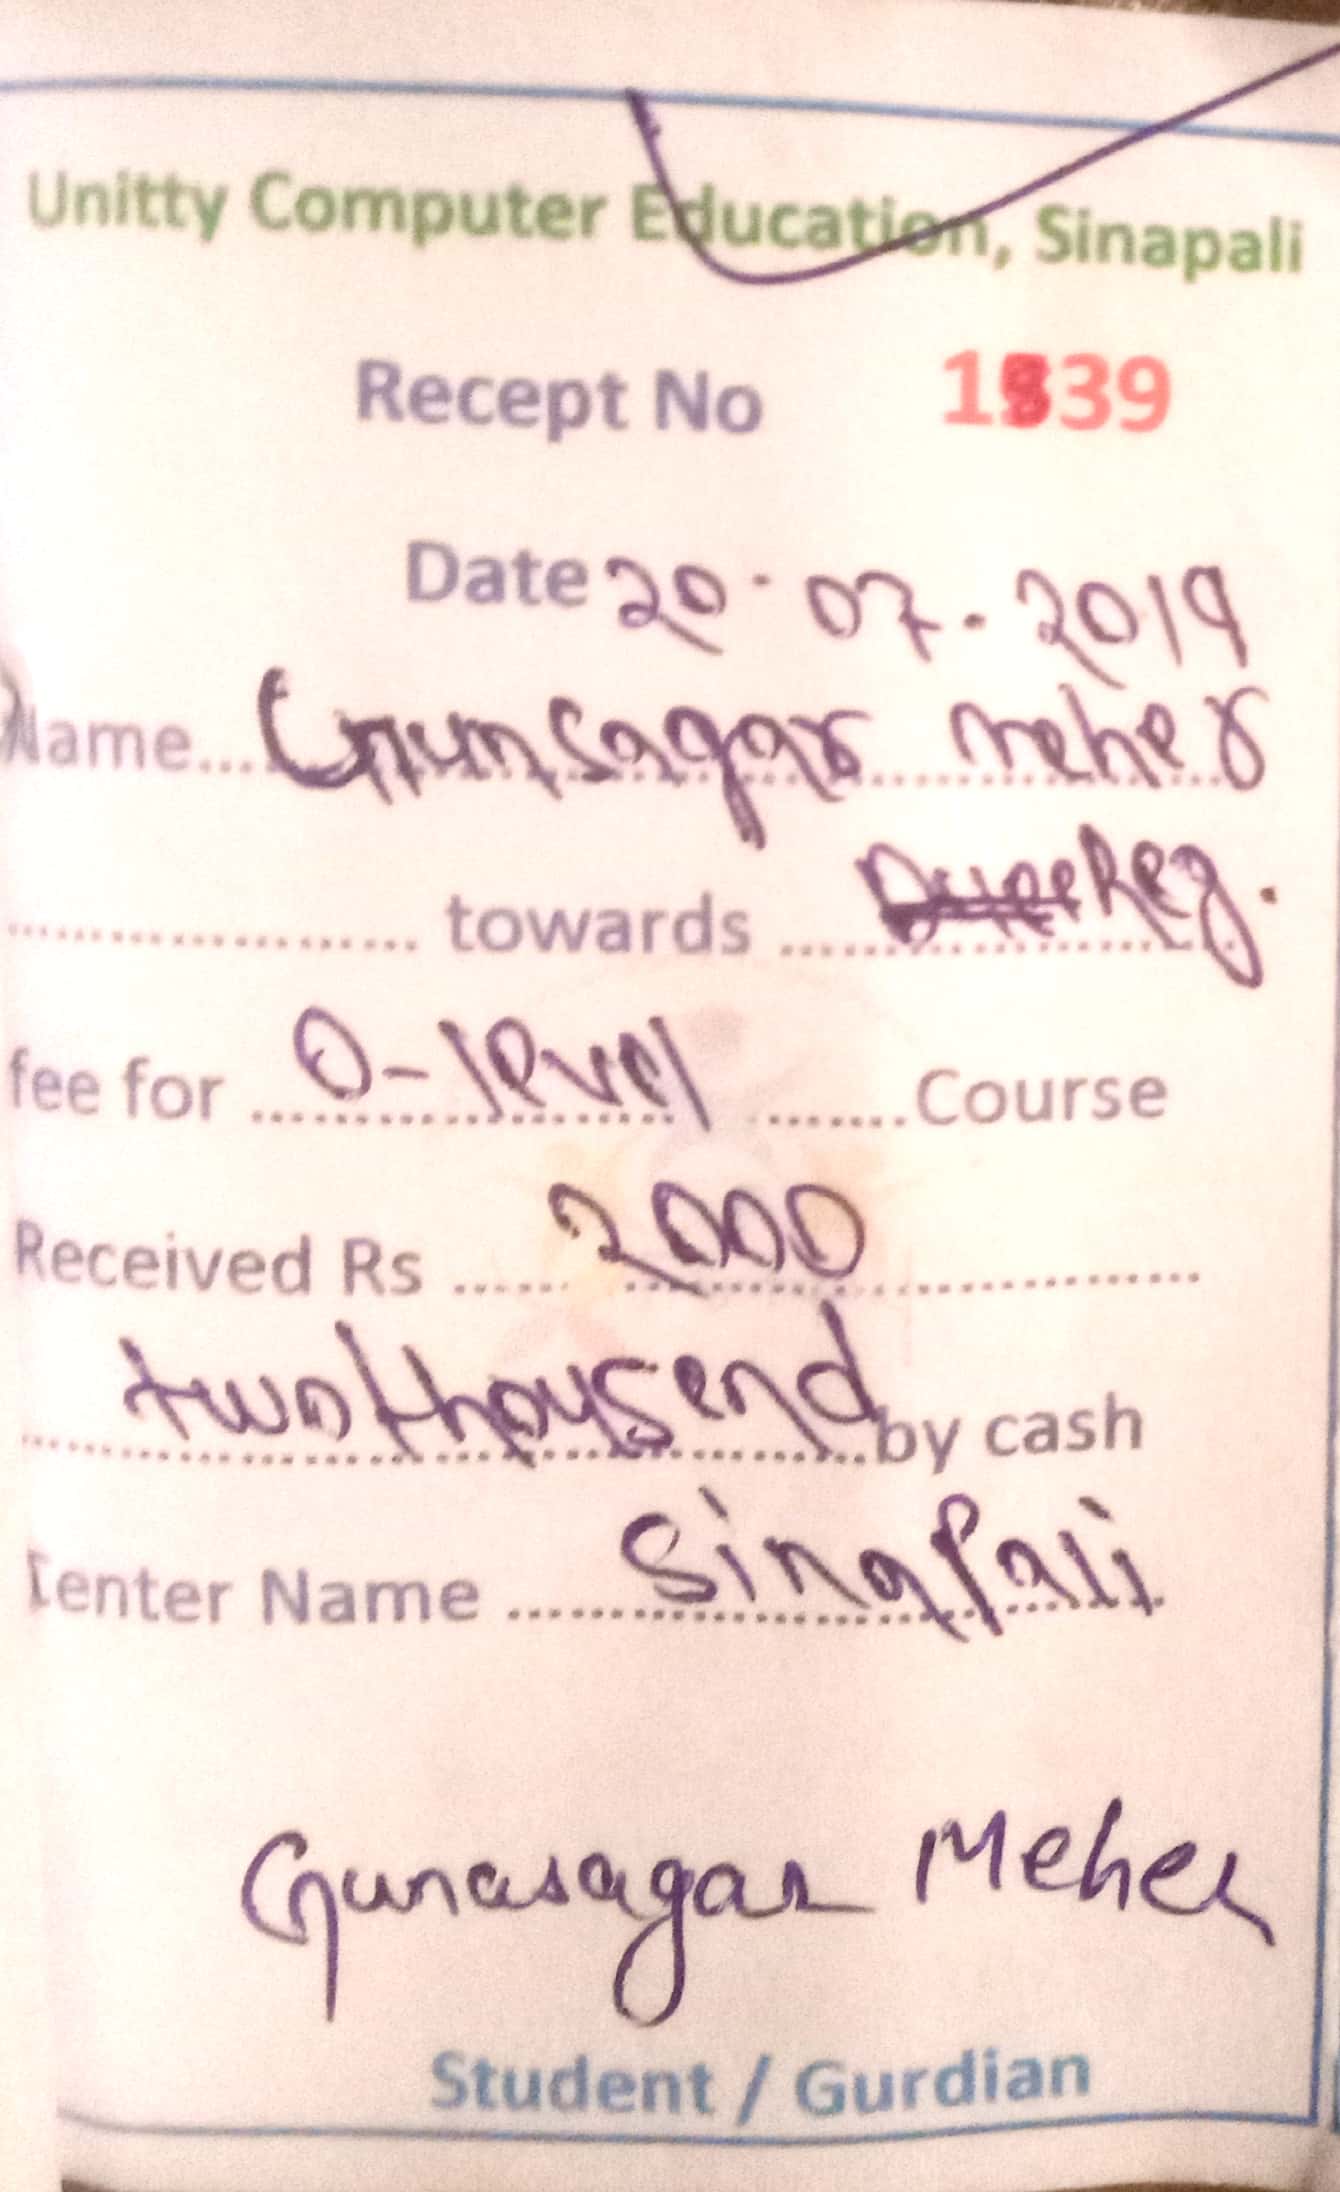 Unitty Computer Education, Sinapali
Recept No 1839
Date 20.07.2019
Name... Gunsagar meher
towards Reg.
fee for O-level Course
Received Rs 2000
two thousend by cash
Center Name Sinapali
Gunasagar Meher
Student / Gurdian